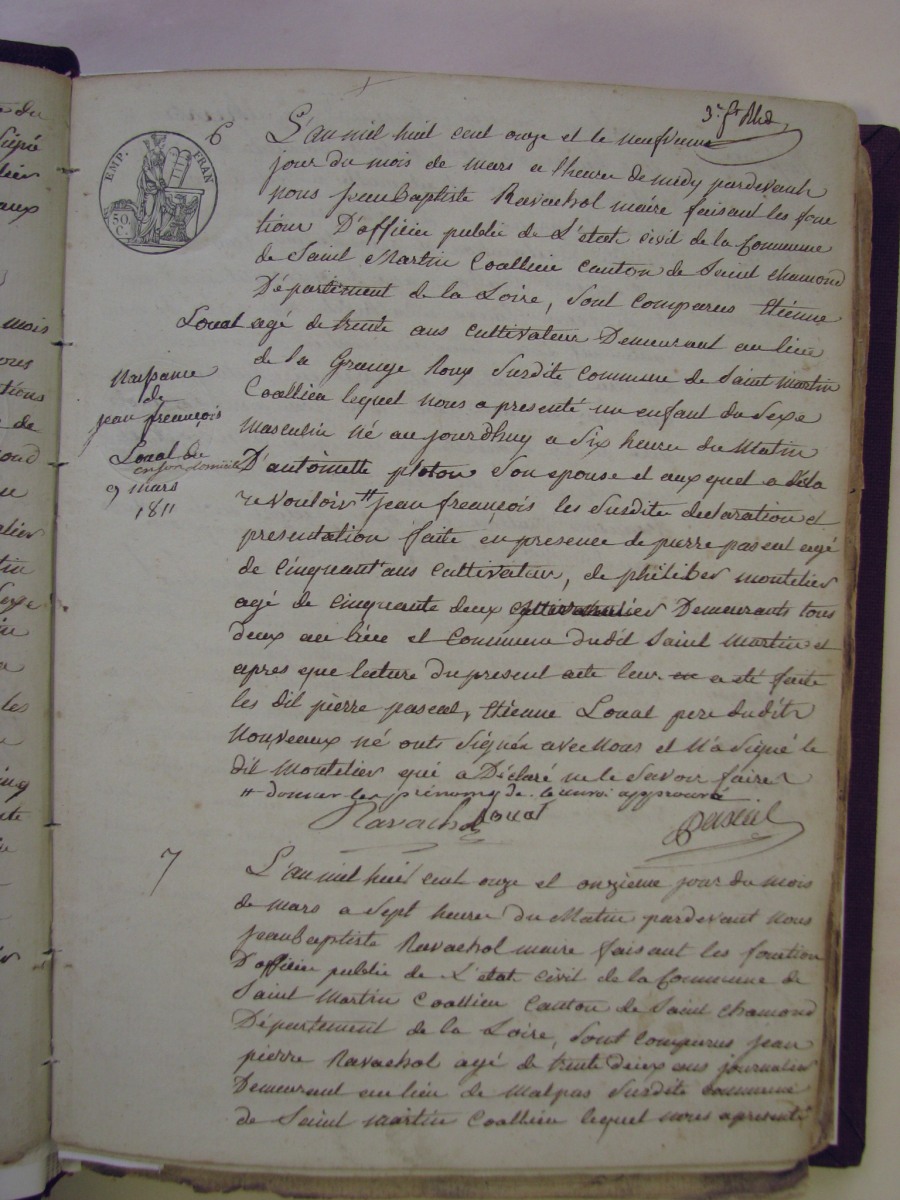 3e ft
EMP. FRAN
50 C.
6
L'an mil huit cent onze et le neufvieme
jour du mois de mars a l'heure de midy pardevant
nous jean Baptiste Ravachol maire faisant les fonc
tions D'officier public de L'état civil de la Commune
de Saint Martin Coallieu canton de Saint chamond
Département de la Loire, sont comparus Etienne
Louat agé de trente ans cultivateur Demeurant au lieu
de la Grange Roux Susdite commune de Saint martin
Coallieu lequel nous a presenté un enfant du Sexe
masculin né aujourdhuy a Six heure du Matin
D'antoinette ploton Son epouse et auxquel a déla
re vouloir # jean freançois les Susdite declaration et
presentation faite en presence de pierre pascal agé
de Cinquant'ans cultivateur, de philiber montelier
agé de cinquante deux cultivateur Demeurants tous
deux au lieu et Commune dudit Saint Martin et
apres que lecture du present acte leur en a été faite
les dit pierre pascal, Etienne Louat pere dudit
Nouveaux né onts Signée avec Nous et N'a Signé le
dit Montelier qui a Déclaré ne le Savoir faire
# donner les prénoms de. le renvoi approuvé
Ravachol Louat Pascal
Naissance
de
jean freançois
Louat de
en son domicile
9 mars
1811
7
L'an mil huit cent onze et onzieme jour du mois
de mars a Sept heure du Matin pardevant nous
jean Baptiste Ravachol maire faisant les fonction
D'officier public de L'etat civil de la Commune de
Saint Martin Coallieu Canton de Saint chamond
Département de la Loire, Sont comparus jean
pierre Ravachol agé de trente deux ans journalier
Demeurant au lieu de Malpas Susdite commune
de Saint Martin Coallieu lequel nous a presenté